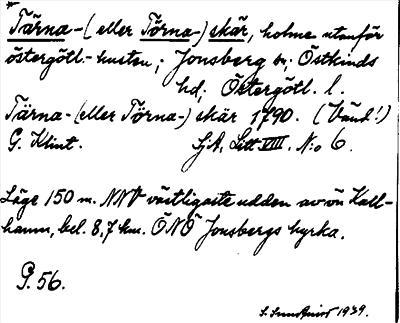 Tärna-(eller Törna-) skär, holme utanför
östergötl.-kusten; Jonsberg sn; Östkinds
hd; Östergötl. l.
Tärna-(eller Törna-) skär 1790. (Vänd!)
G. Klint. SjA, Litt VIII. N:o 6.
Läge 150 m. NNV västligaste udden av ön Kall-
hamn, bel. 8,7 km. ÖNÖ Jonsbergs kyrka.
P. 56.
1939.